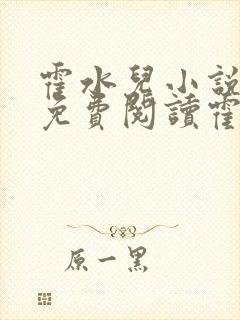 霍水兒小說
免費閱讀霍
原一黑